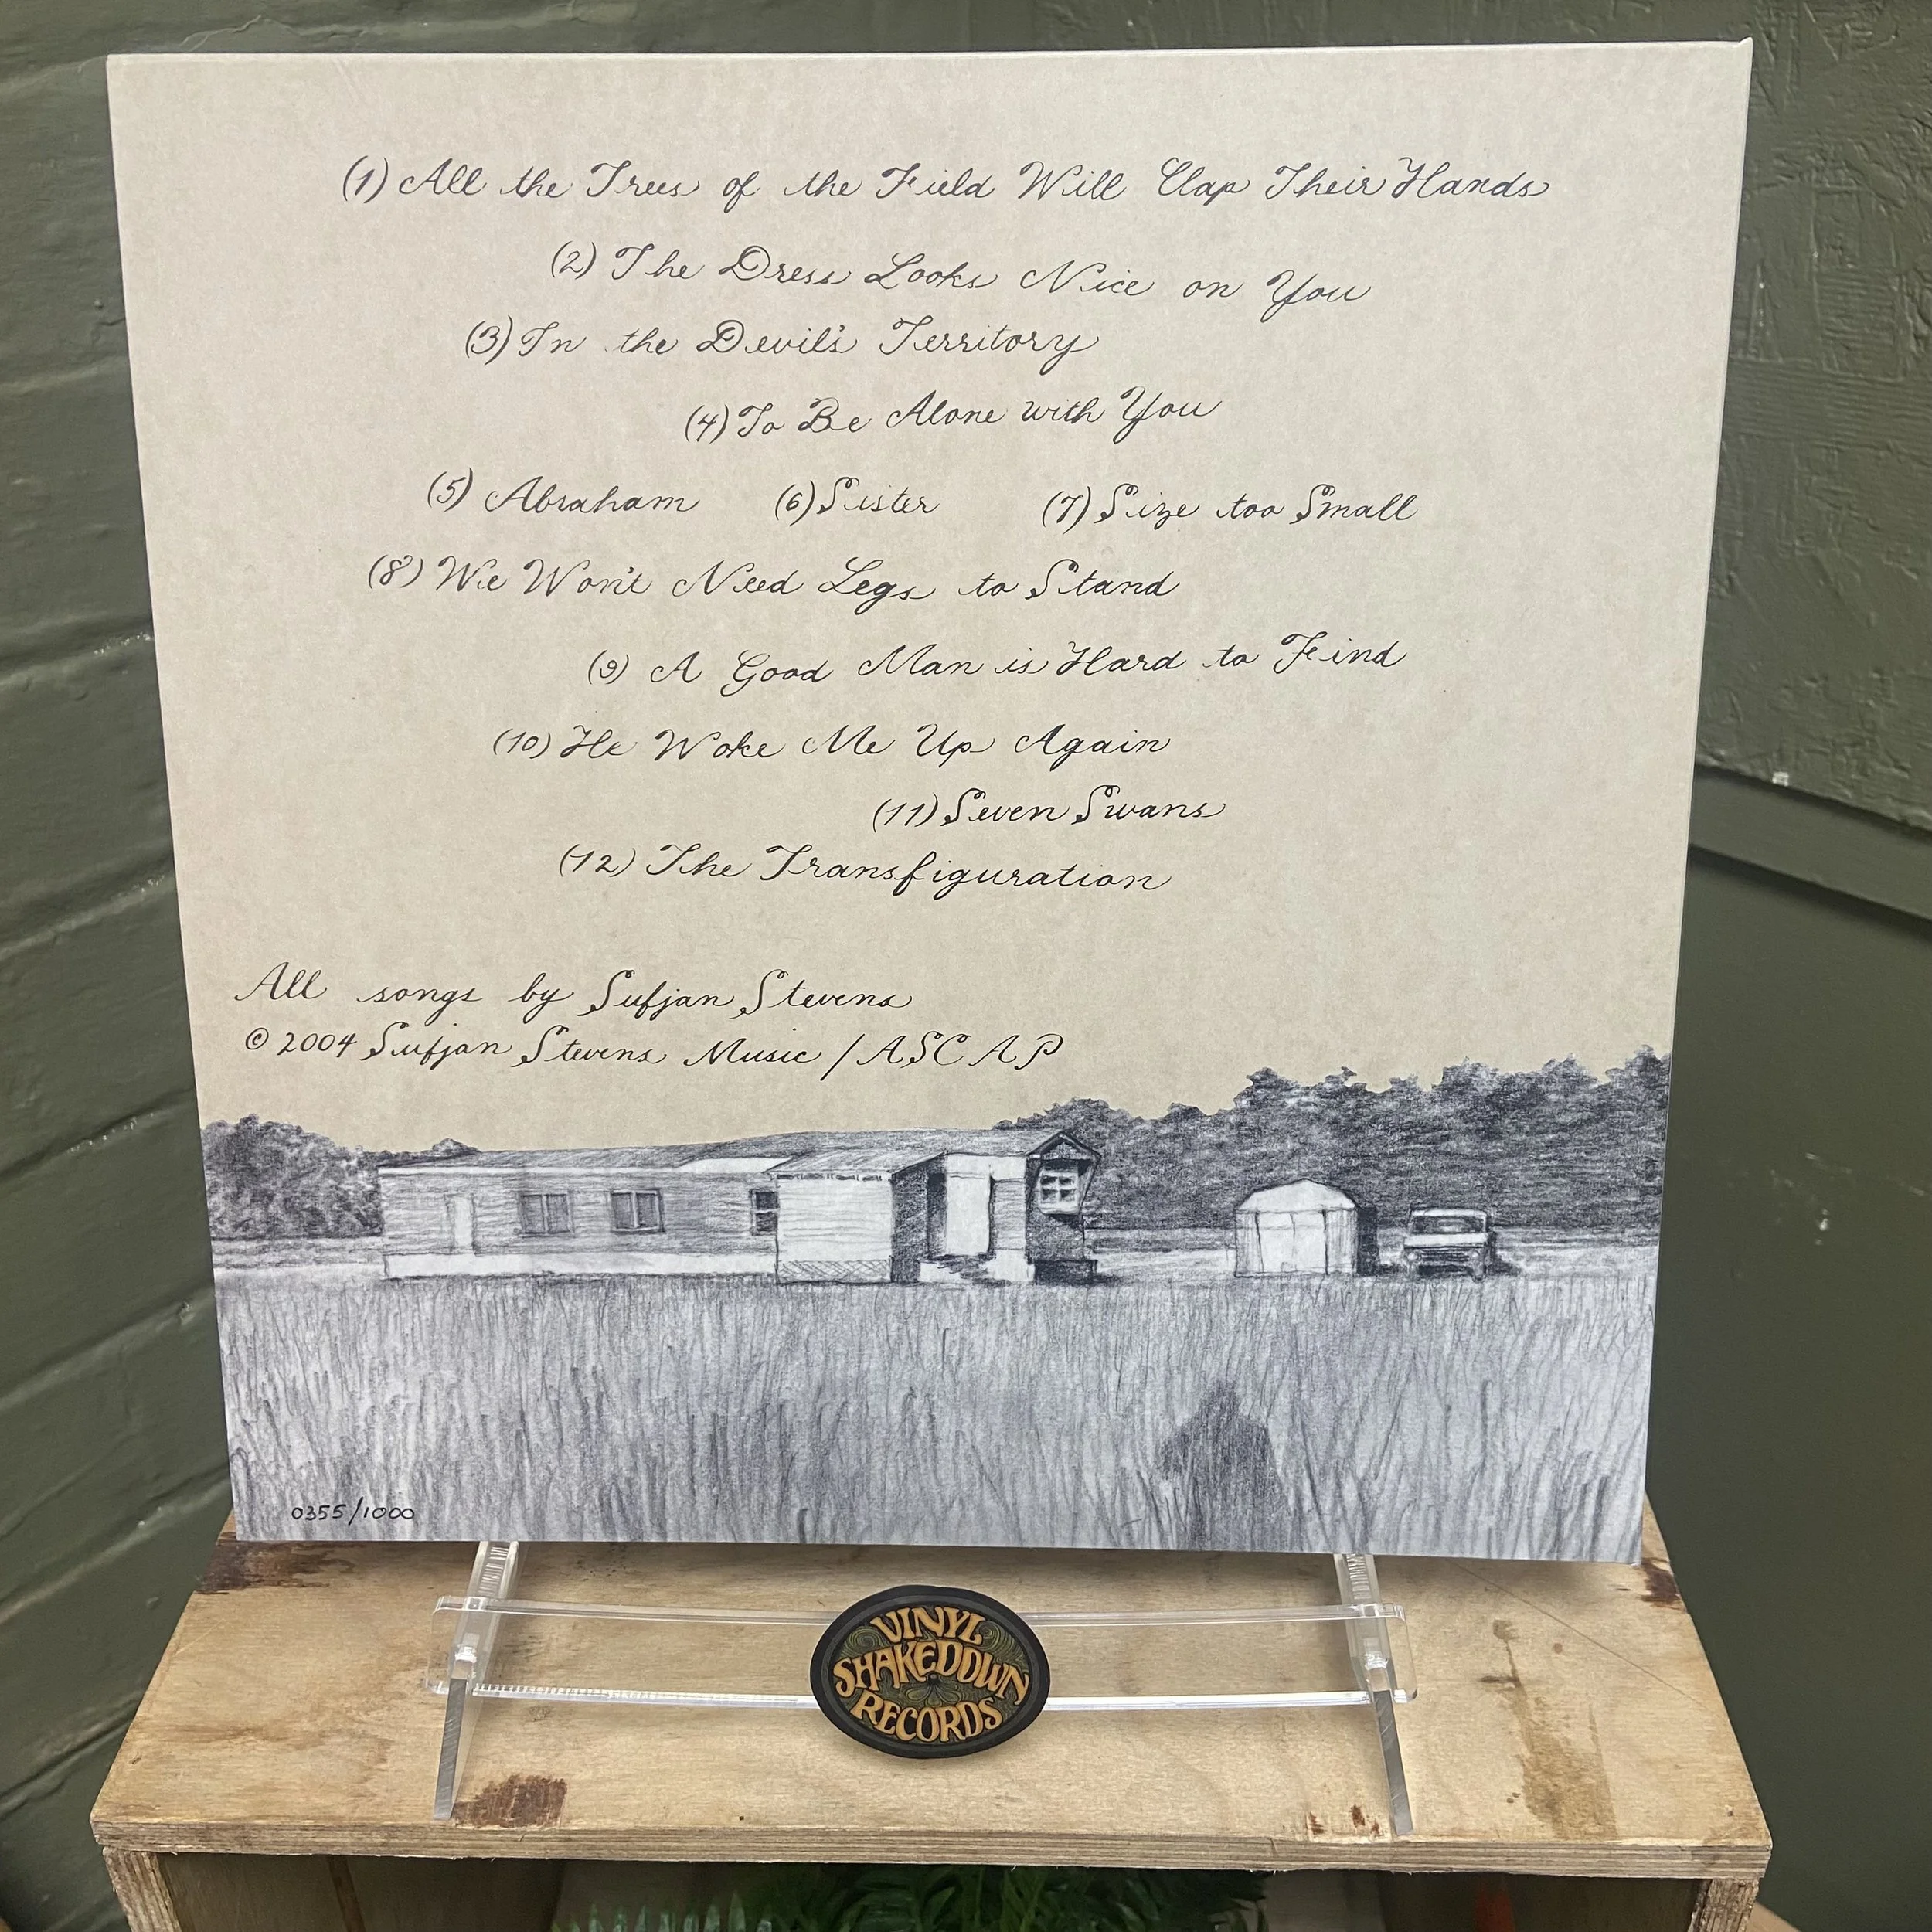 (1) All the Trees of the Field Will Clap Their Hands
(2) The Dress Looks Nice on You
(3) In the Devil's Territory
(4) To Be Alone with You
(5) Abraham (6) Sister (7) Size too Small
(8) We Won't Need Legs to Stand
(9) A Good Man is Hard to Find
(10) He Woke Me Up Again
(11) Seven Swans
(12) The Transfiguration
All songs by Sufjan Stevens
© 2004 Sufjan Stevens Music / ASCAP
0355/1000
VINYL
SHAKEDOWN
RECORDS